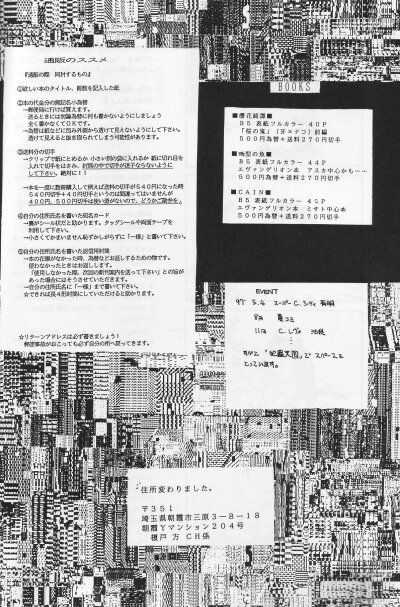 通販のススメ
『通販の際 同封するもの』
①欲しい本のタイトル、冊数を記入した紙
②本の代金分の無記名小為替
→郵便局に行けば買えます。
送るときには勿論為替に何も書かないようにしましょう
全く書かなくてOKです。
為替は紙などに包み外側から透けて見えないようにして下さい。
透けて見えると抜き取られてしまう可能性があります。
③送料分の切手
→クリップで紙にとめるか 小さい別の袋に入れるか 紙に切り目を
入れて切手をはさみ、封筒の中で切手が迷子にならないように
して下さい。絶対に!!
→本を一度に数冊購入して例えば送料の切手が540円になった時
540円切手+40円切手というのは間違ってはいませんが
400円、500円切手は使い道がないので、どうかご勘弁を。
④自分の住所氏名を書いた宛名カード
→裏がシール状だと助かります。タックシールや両面テープを
利用して下さい。
→小さくてかまいません恥ずかしがらずに「一様」と書いて下さい。
⑤自分の住所氏名を書いた返信用封筒
→本の在庫がなかった時、為替などお返しするための物です。
使わなかったときはお返しします。
「使用しなかった際、次回の新刊案内を送って下さい」との旨が
あった場合にはそうさせていただきます。
→自分の住所氏名に「一様」まで書いて下さい。
☆できれば長4封筒にしていただけると助かります。
☆リターンアドレスは必ず書きましょう!
郵便事故がおこっても必ず自分の所へ戻ってきます。
BOOKS
■櫻花綺譚■
B5 表紙フルカラー 40P
「桜の鬼」(牙×ナコ)前編
500円為替+送料270円切手
■畸型の魚■
B5 表紙フルカラー 44P
エヴァンゲリオン本 アスカ中心かも……
500円為替+送料270円切手
■CAIN■
B5 表紙フルカラー
エヴァンゲリオン本 ミサト中心本
500円為替+送料270円切手
EVENT
97 5.4 スーパーC.シティ 有明
8月 夏コミ
11月 C.レヴォ 池袋
⋮
スペースを
とっています。
住所変わりました。
〒351
埼玉県朝霞市三原3-8-18
朝霞Yマンション204号
榎戸 方 CH係